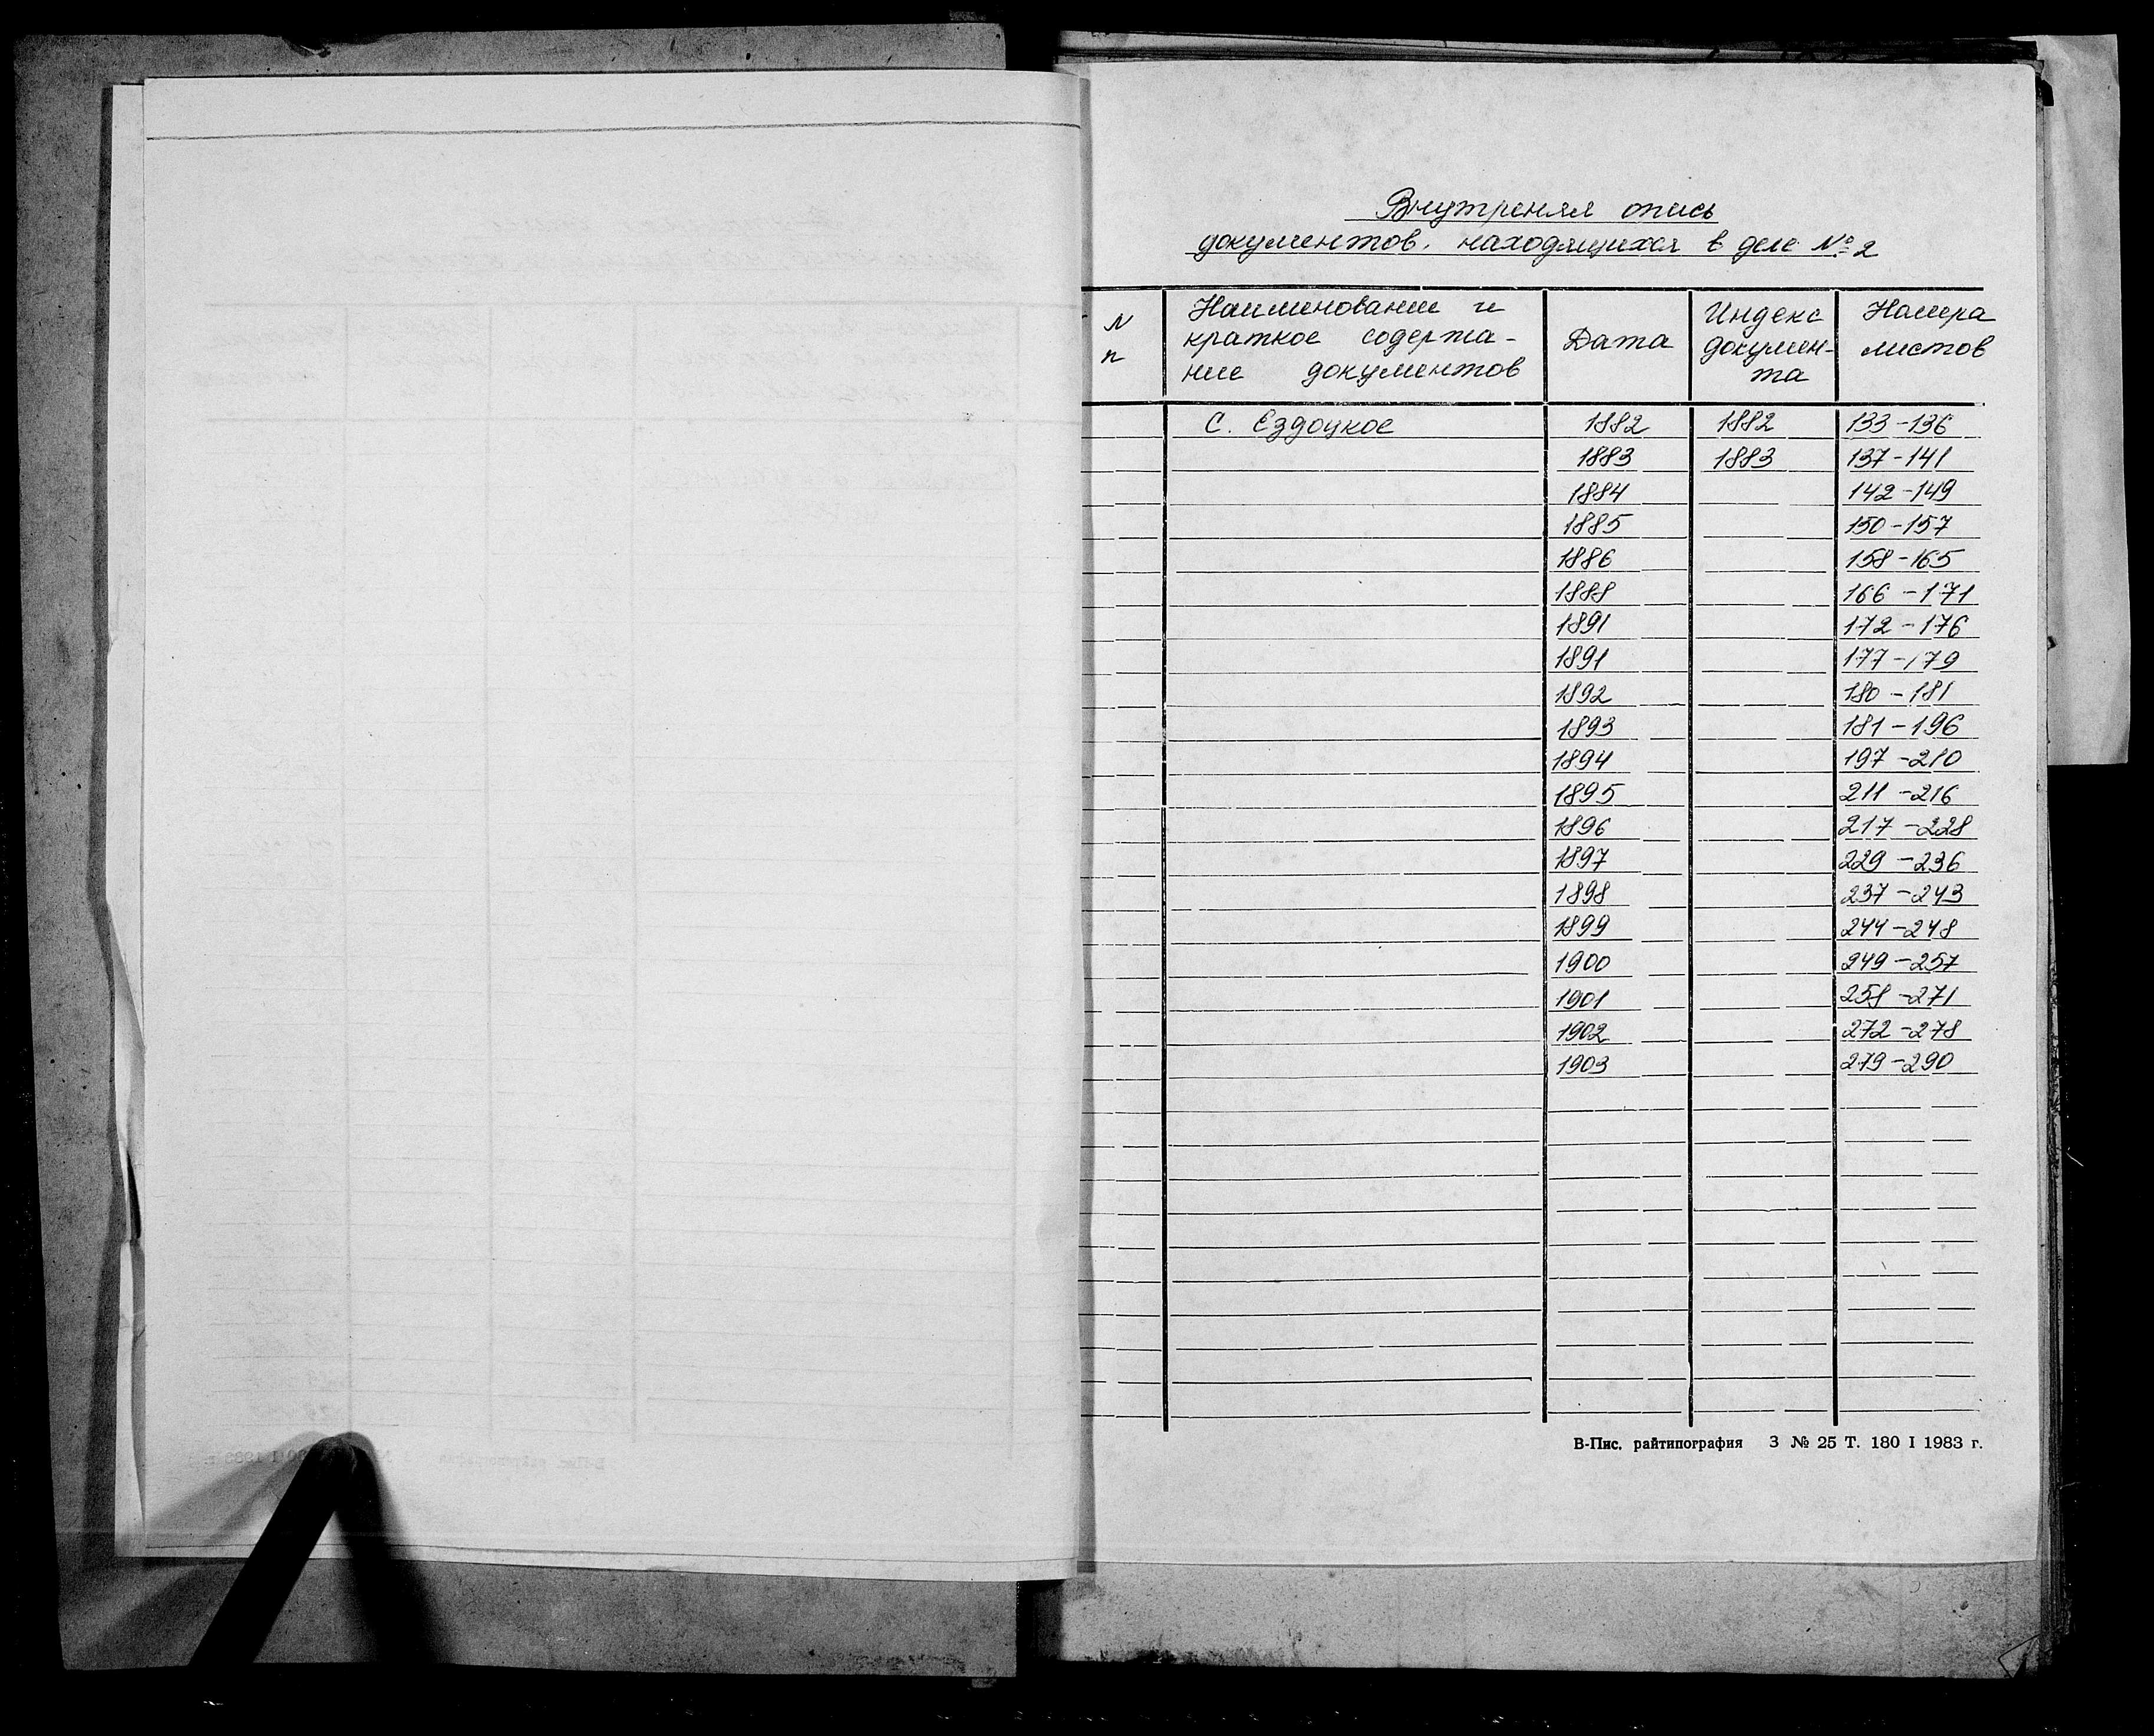 Внутреняя опись
документов, находящихся в деле № 2
N п | Наименование и краткое содержа- ние документов | Дата | Индекс докумен- та | Номера листов
С. Ездоцкое 1882 1882 133-136
1883 1883 137-141
1884 142-149
1885 150-157
1886 158-165
1888 166-171
1891 172-176
1891 177-179
1892 180-181
1893 181-196
1894 197-210
1895 211-216
1896 217-228
1897 229-236
1898 237-243
1899 244-248
1900 249-257
1901 258-271
1902 272-278
1903 279-290
В-Пис. райтипография З № 25 Т. 180 I 1983 г.